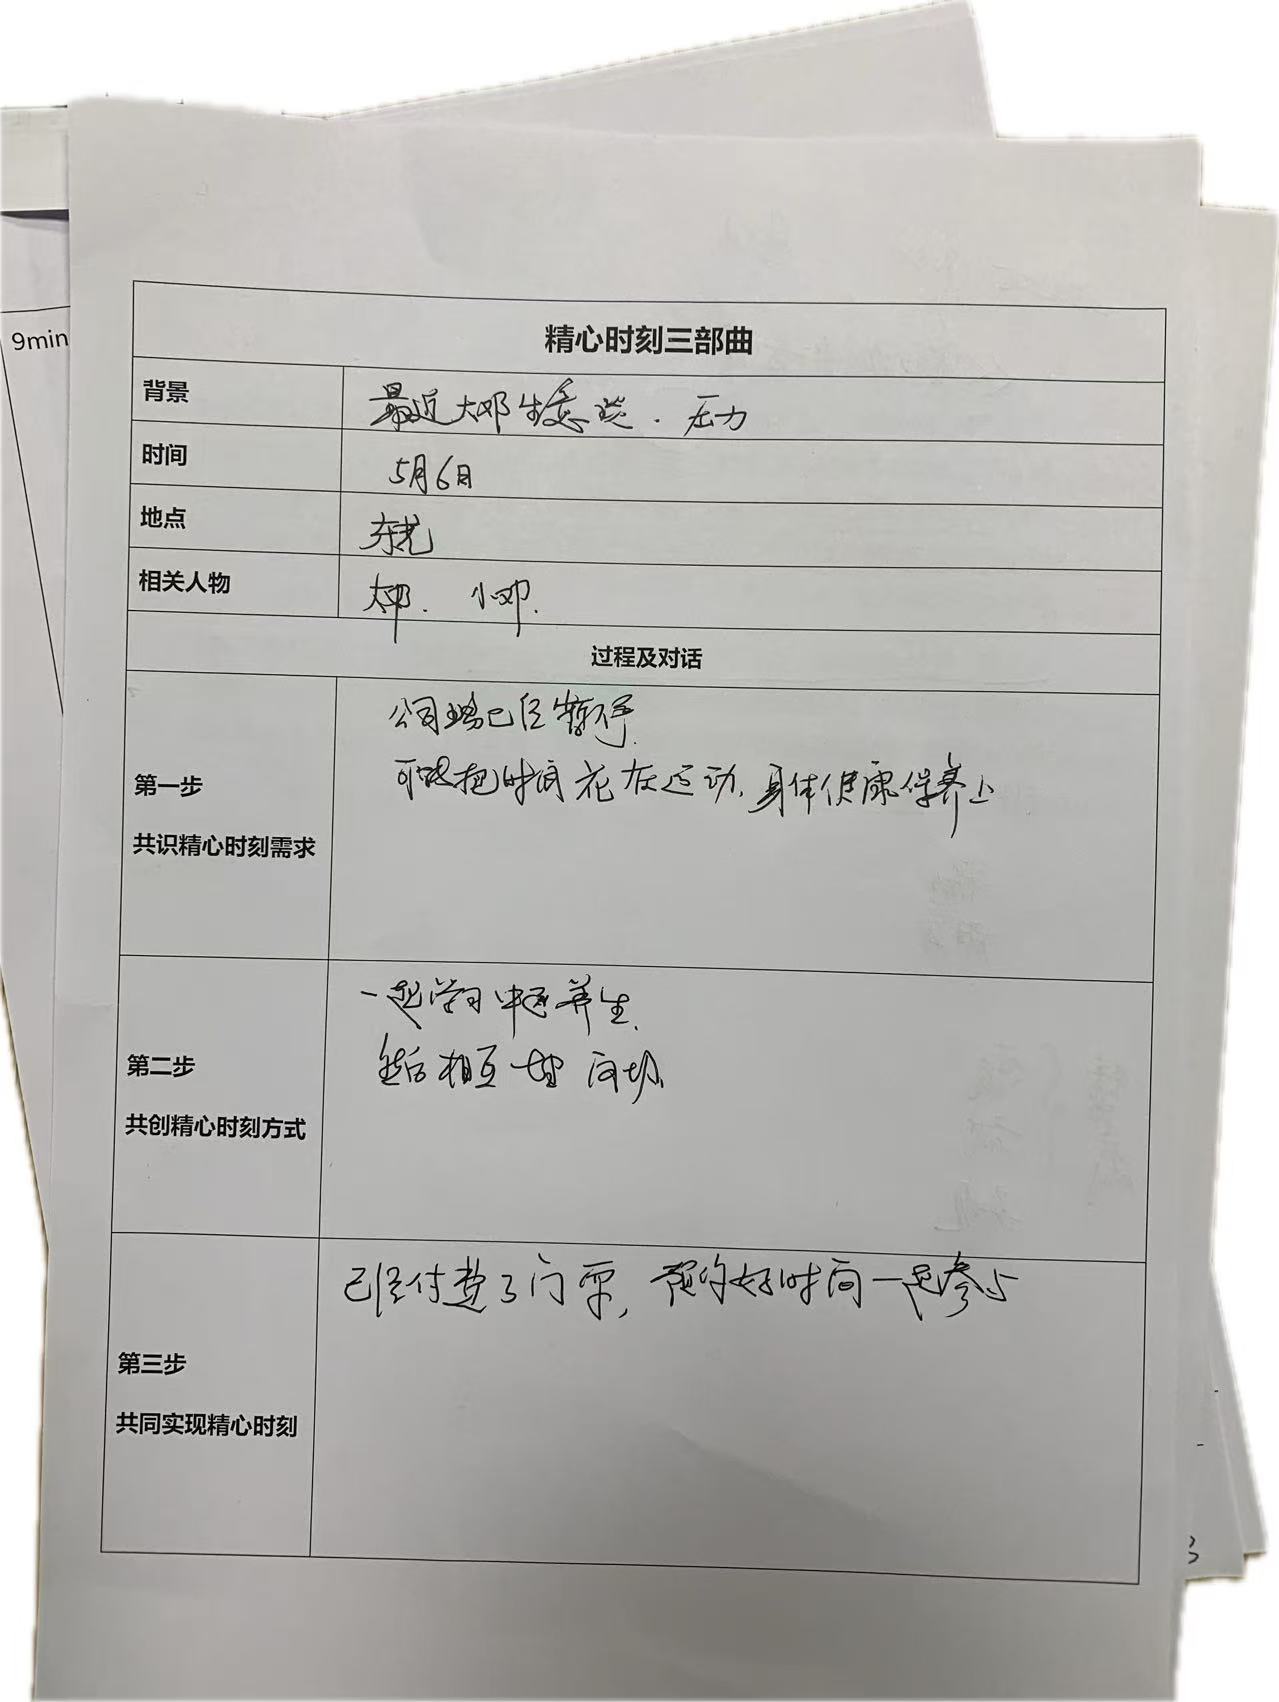 9min
精心时刻三部曲
背景 最近大邓生意淡．压力
时间 5月6日
地点 东莞
相关人物 大邓．小邓．
过程及对话
第一步
共识精心时刻需求
公司已经暂停
可以把时间花在运动，身体健康保养上
第二步
共创精心时刻方式
一起学习中医养生
相互
第三步
共同实现精心时刻
已经付费了门票，预约好时间一起参与